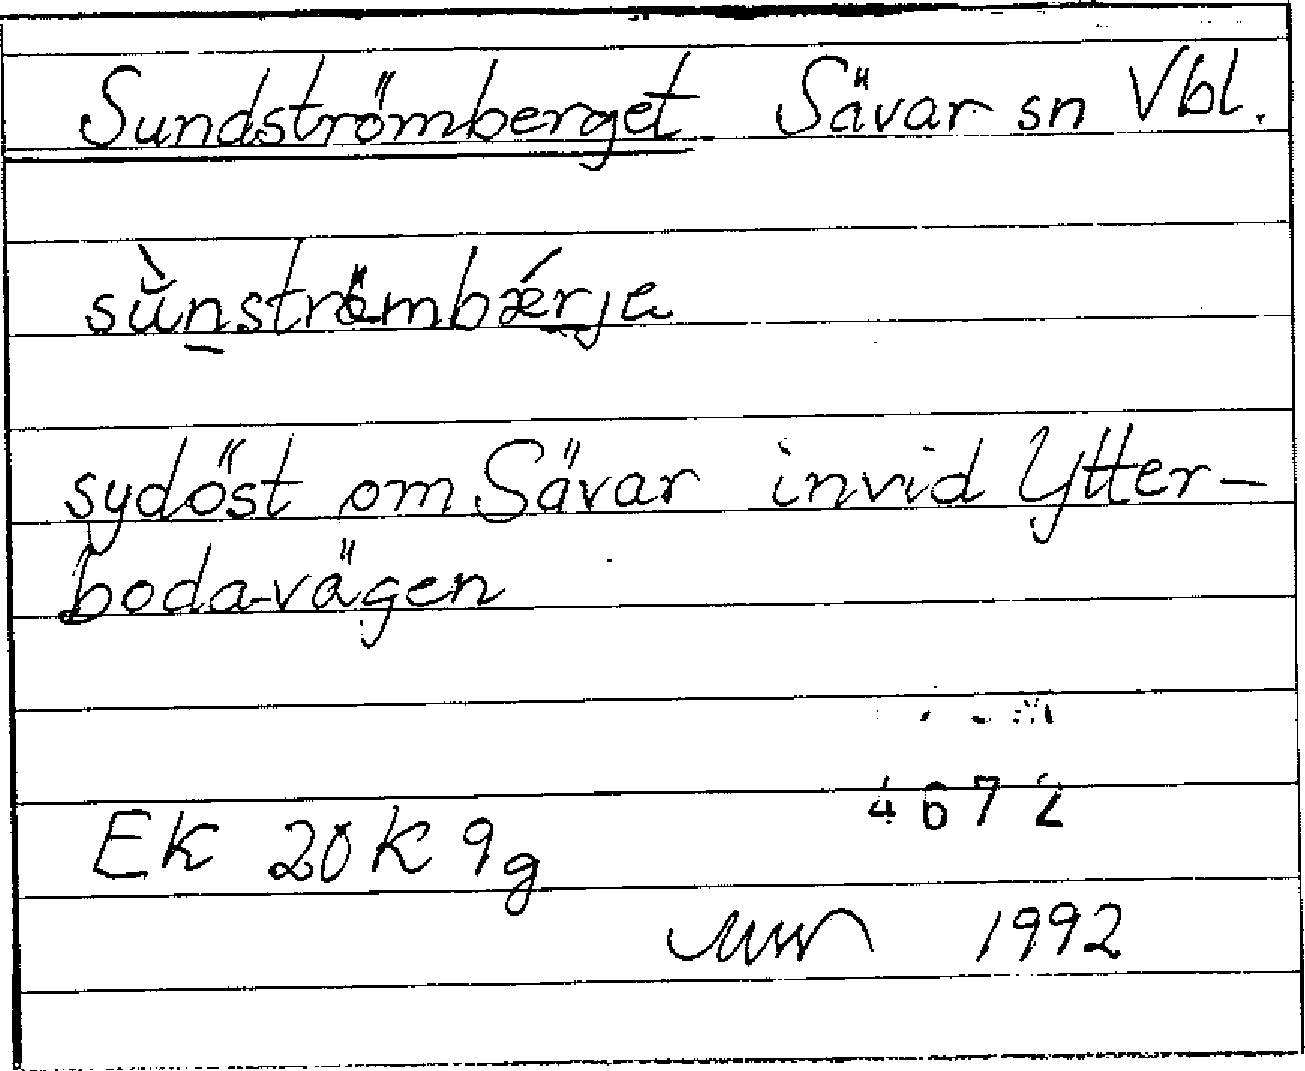 Sundströmberget Sävar sn Vbl.
sǜn̲strömbǽrja
sydöst om Sävar invid Ytter-
boda-vägen
4672
Ek 20K 9g
1992